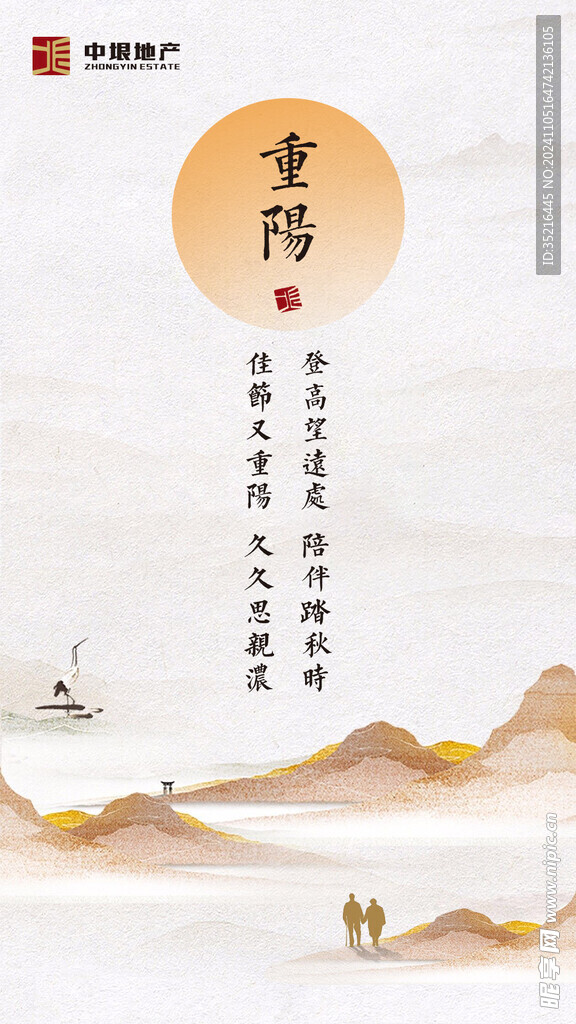 中垠地产
ZHONGYIN ESTATE
重陽
登高望遠處 陪伴踏秋時
佳節又重陽 久久思親濃
ID:35216445 NO:20241105164742136105
昵享网 www.nipic.cn